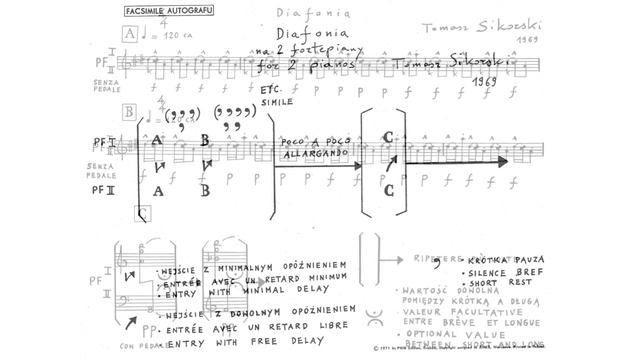 FACSIMILE AUTOGRAFU
Diafonia
Diafonia
na 2 fortepiany
for 2 pianos
Tomasz Sikorski
1969
Tomasz Sikorski
1969
A ♩ = 120 CA
PF I
II
SENZA PEDALE
f f f f f p p p f f f
ETC. SIMILE
B ♩ = 120 CA
(, , ,) (, , , ,)
PF I
A B
SENZA PEDALE
PF II
A B
POCO A POCO
ALLARGANDO
C
C
C
PF I
II
PP
CON PEDALE
• WEJŚCIE Z MINIMALNYM OPÓŹNIENIEM
• ENTRÉE AVEC UN RETARD MINIMUM
• ENTRY WITH MINIMAL DELAY
• WEJŚCIE Z DOWOLNYM OPÓŹNIENIEM
• ENTRÉE AVEC UN RETARD LIBRE
• ENTRY WITH FREE DELAY
RIPETERE
• KRÓTKA PAUZA
• SILENCE BREF
• SHORT REST
• WARTOŚĆ DOWOLNA
POMIĘDZY KRÓTKĄ A DŁUGĄ
• VALEUR FACULTATIVE
ENTRE BRÈVE ET LONGUE
• OPTIONAL VALUE
BETWEEN SHORT AND LONG